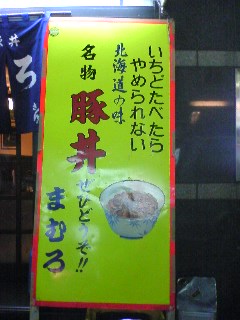 いちどたべたら
やめられない
北海道の味
名物
豚丼
ぜひどうぞ!!
まむろ
丼
ろ